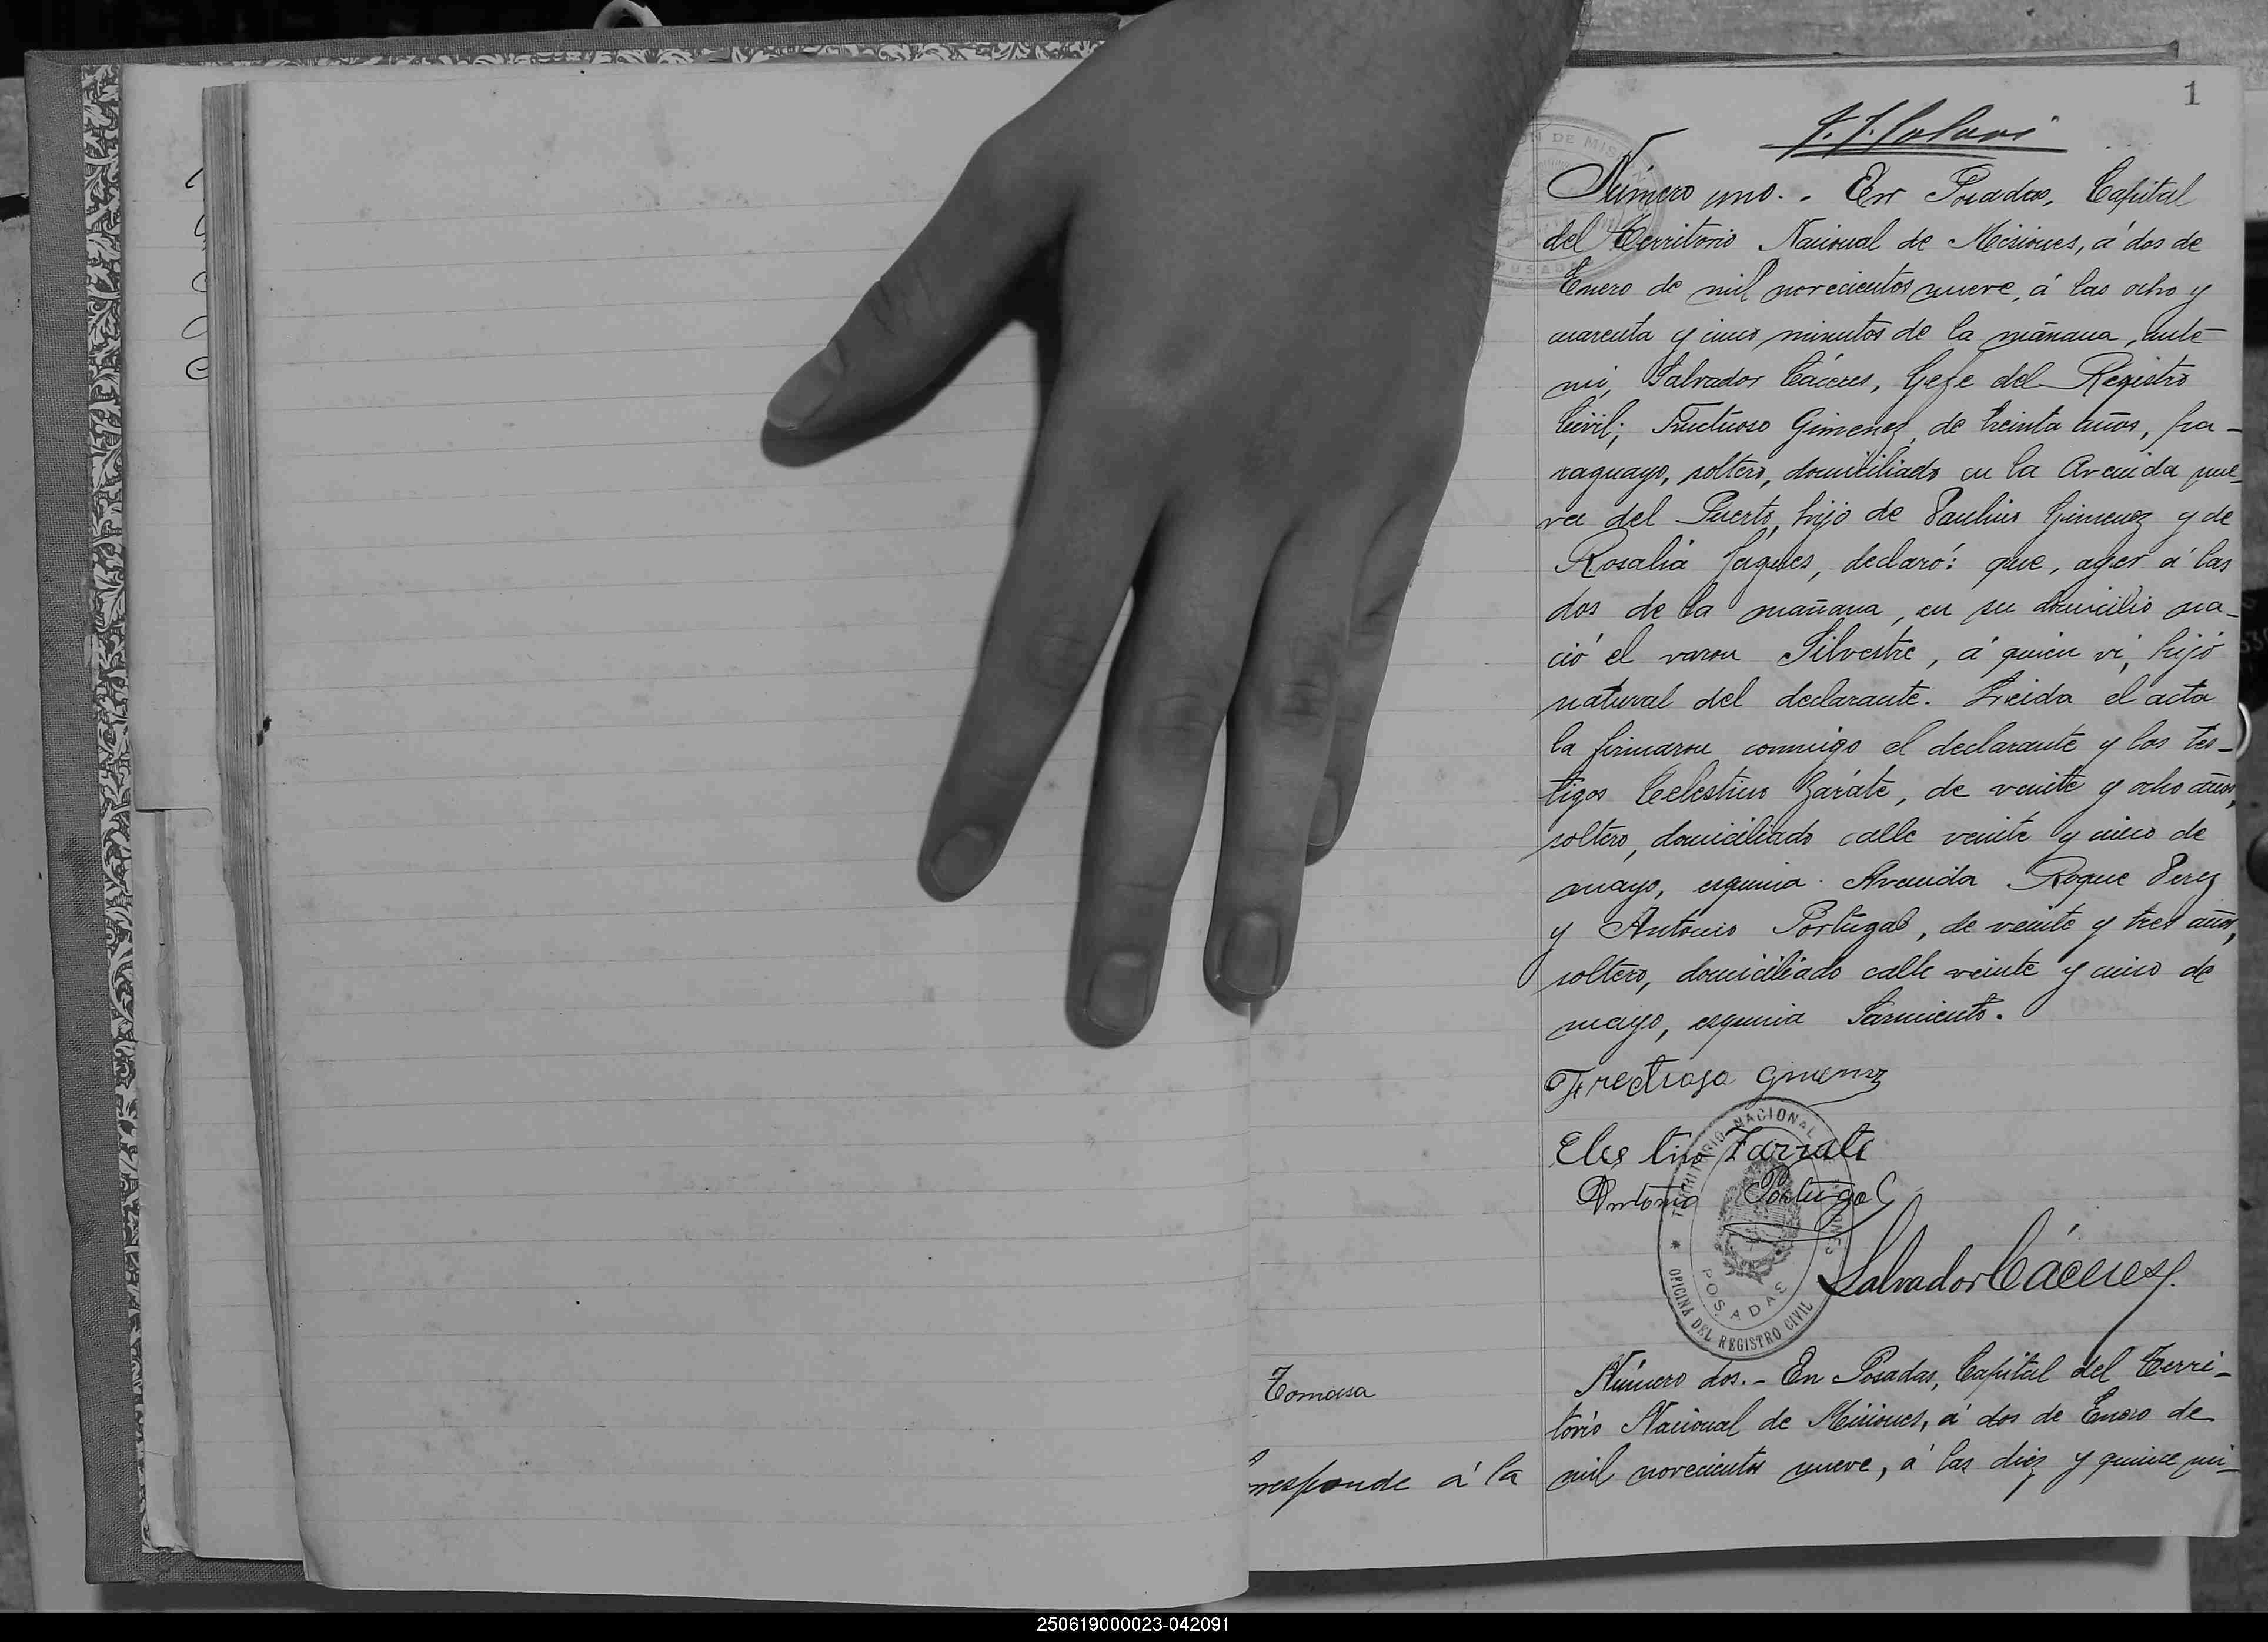 1
Número uno. - En Posadas, Capital
del Territorio Nacional de Misiones, á dos de
Enero de mil novecientos nueve, á las ocho y
cuarenta y cinco minutos de la mañana, ante
mi, Salvador Cáceres, Gefe del Registro
Civil; Fructuoso Gimenez, de treinta años, pa-
raguayo, soltero, domiciliado en la Avenida nue-
va del Puerto, hijo de Paulino Gimenez y de
Rosalia, declaró: que, ayer á las
dos de la mañana, en su domicilio na-
ció el varon Silvestre, á quien vi, hijo
natural del declarante. Leida el acta
la firmaron conmigo el declarante y los tes-
tigos Celestino Zárate, de veinte y ocho años,
soltero, domiciliado calle veinte y cinco de
mayo, esquina Avenida Roque Perez
y Antonio Portugal, de veinte y tres años,
soltero, domiciliado calle veinte y cinco de
mayo, esquina Sarmiento.
Gimenez
Zarrate
Antonio Portugal
TERRITORIO NACIONAL
POSADAS
OFICINA DEL REGISTRO CIVIL
Salvador Cáceres
Tomasa
Número dos. - En Posadas, Capital del Terri-
torio Nacional de Misiones, á dos de Enero de
rresponde á la
mil novecientos nueve, á las diez y quince mi-
250619000023-042091